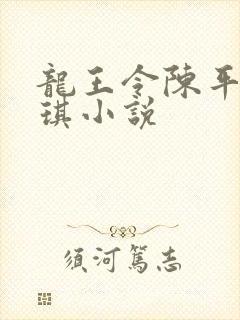 龍王令陳平
琪小說
須河篤志